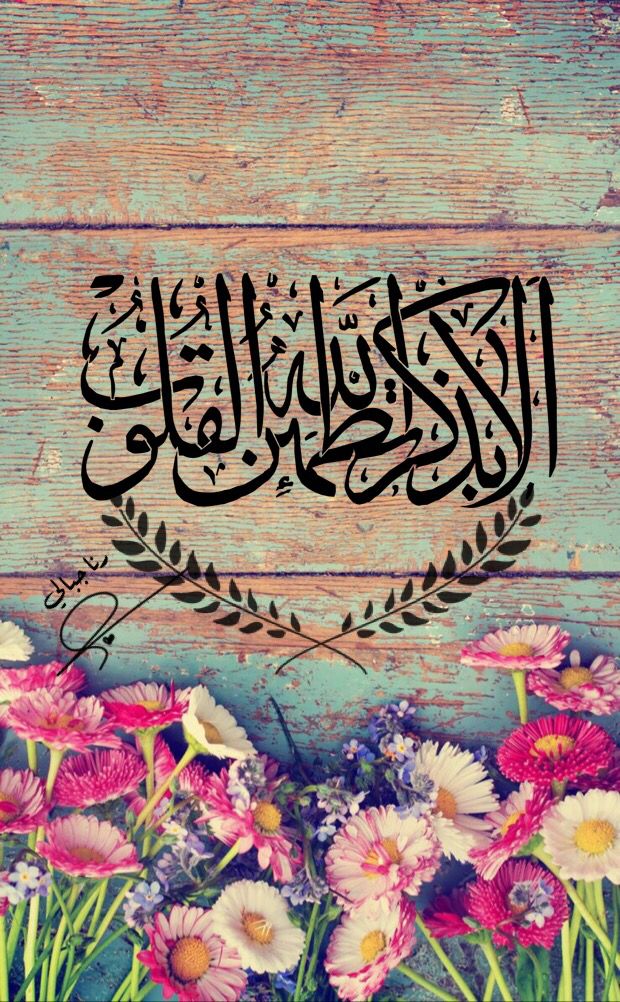 ألا بذكر الله تطمئن القلوب
رنا جبالي